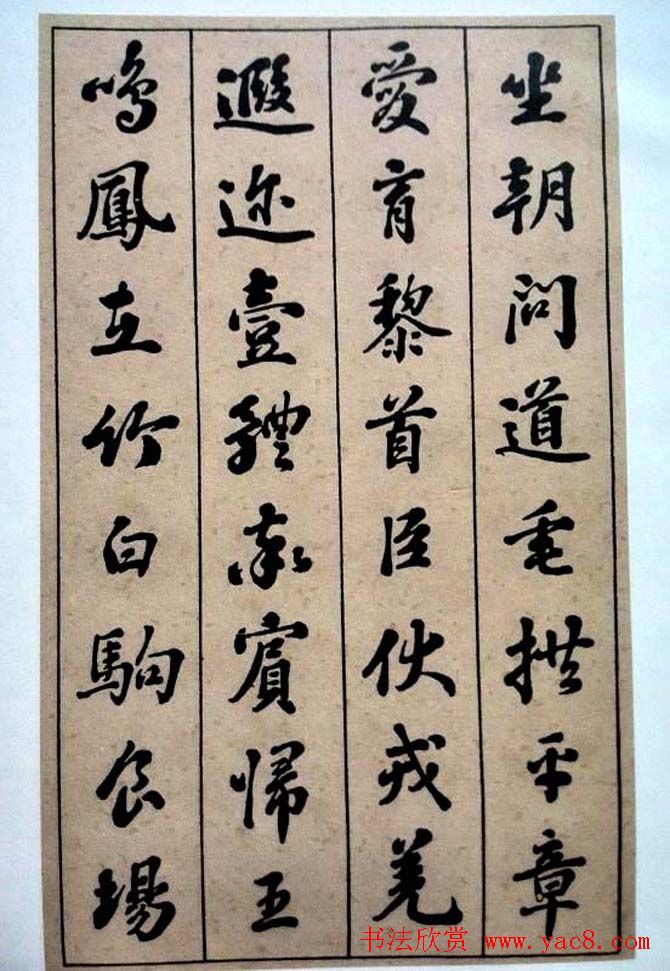 坐朝問道垂拱平章
愛育黎首臣伏戎羌
遐迩壹體率賓歸王
鳴鳳在竹白駒食場
书法欣赏 www.yac8.com